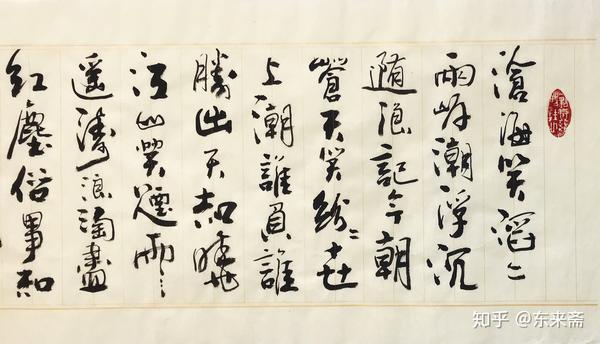 滄海笑滔〻
兩岸潮浮沉
隨浪記今朝
蒼天笑紛〻世
上潮誰負誰
勝出天知曉
江山笑煙雨
遥濤浪淘盡
紅塵俗事知
知乎 @东来斋